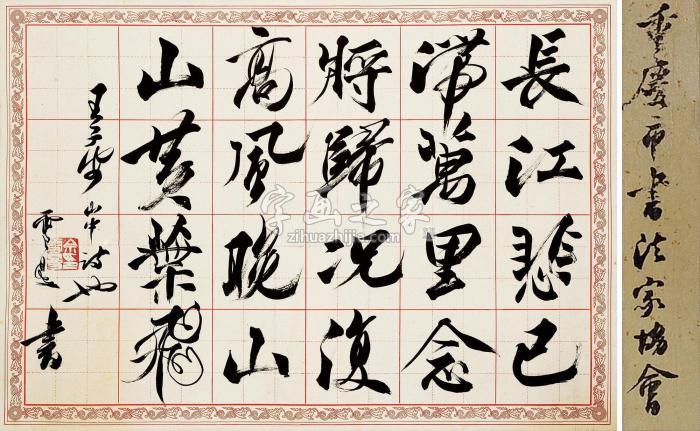 重慶市書法家協會
長江悲已
滯萬里念
將歸况復
高風晚山
山黄葉飛
王子安山中詩也
書
字画之家
zihuazhijia.com